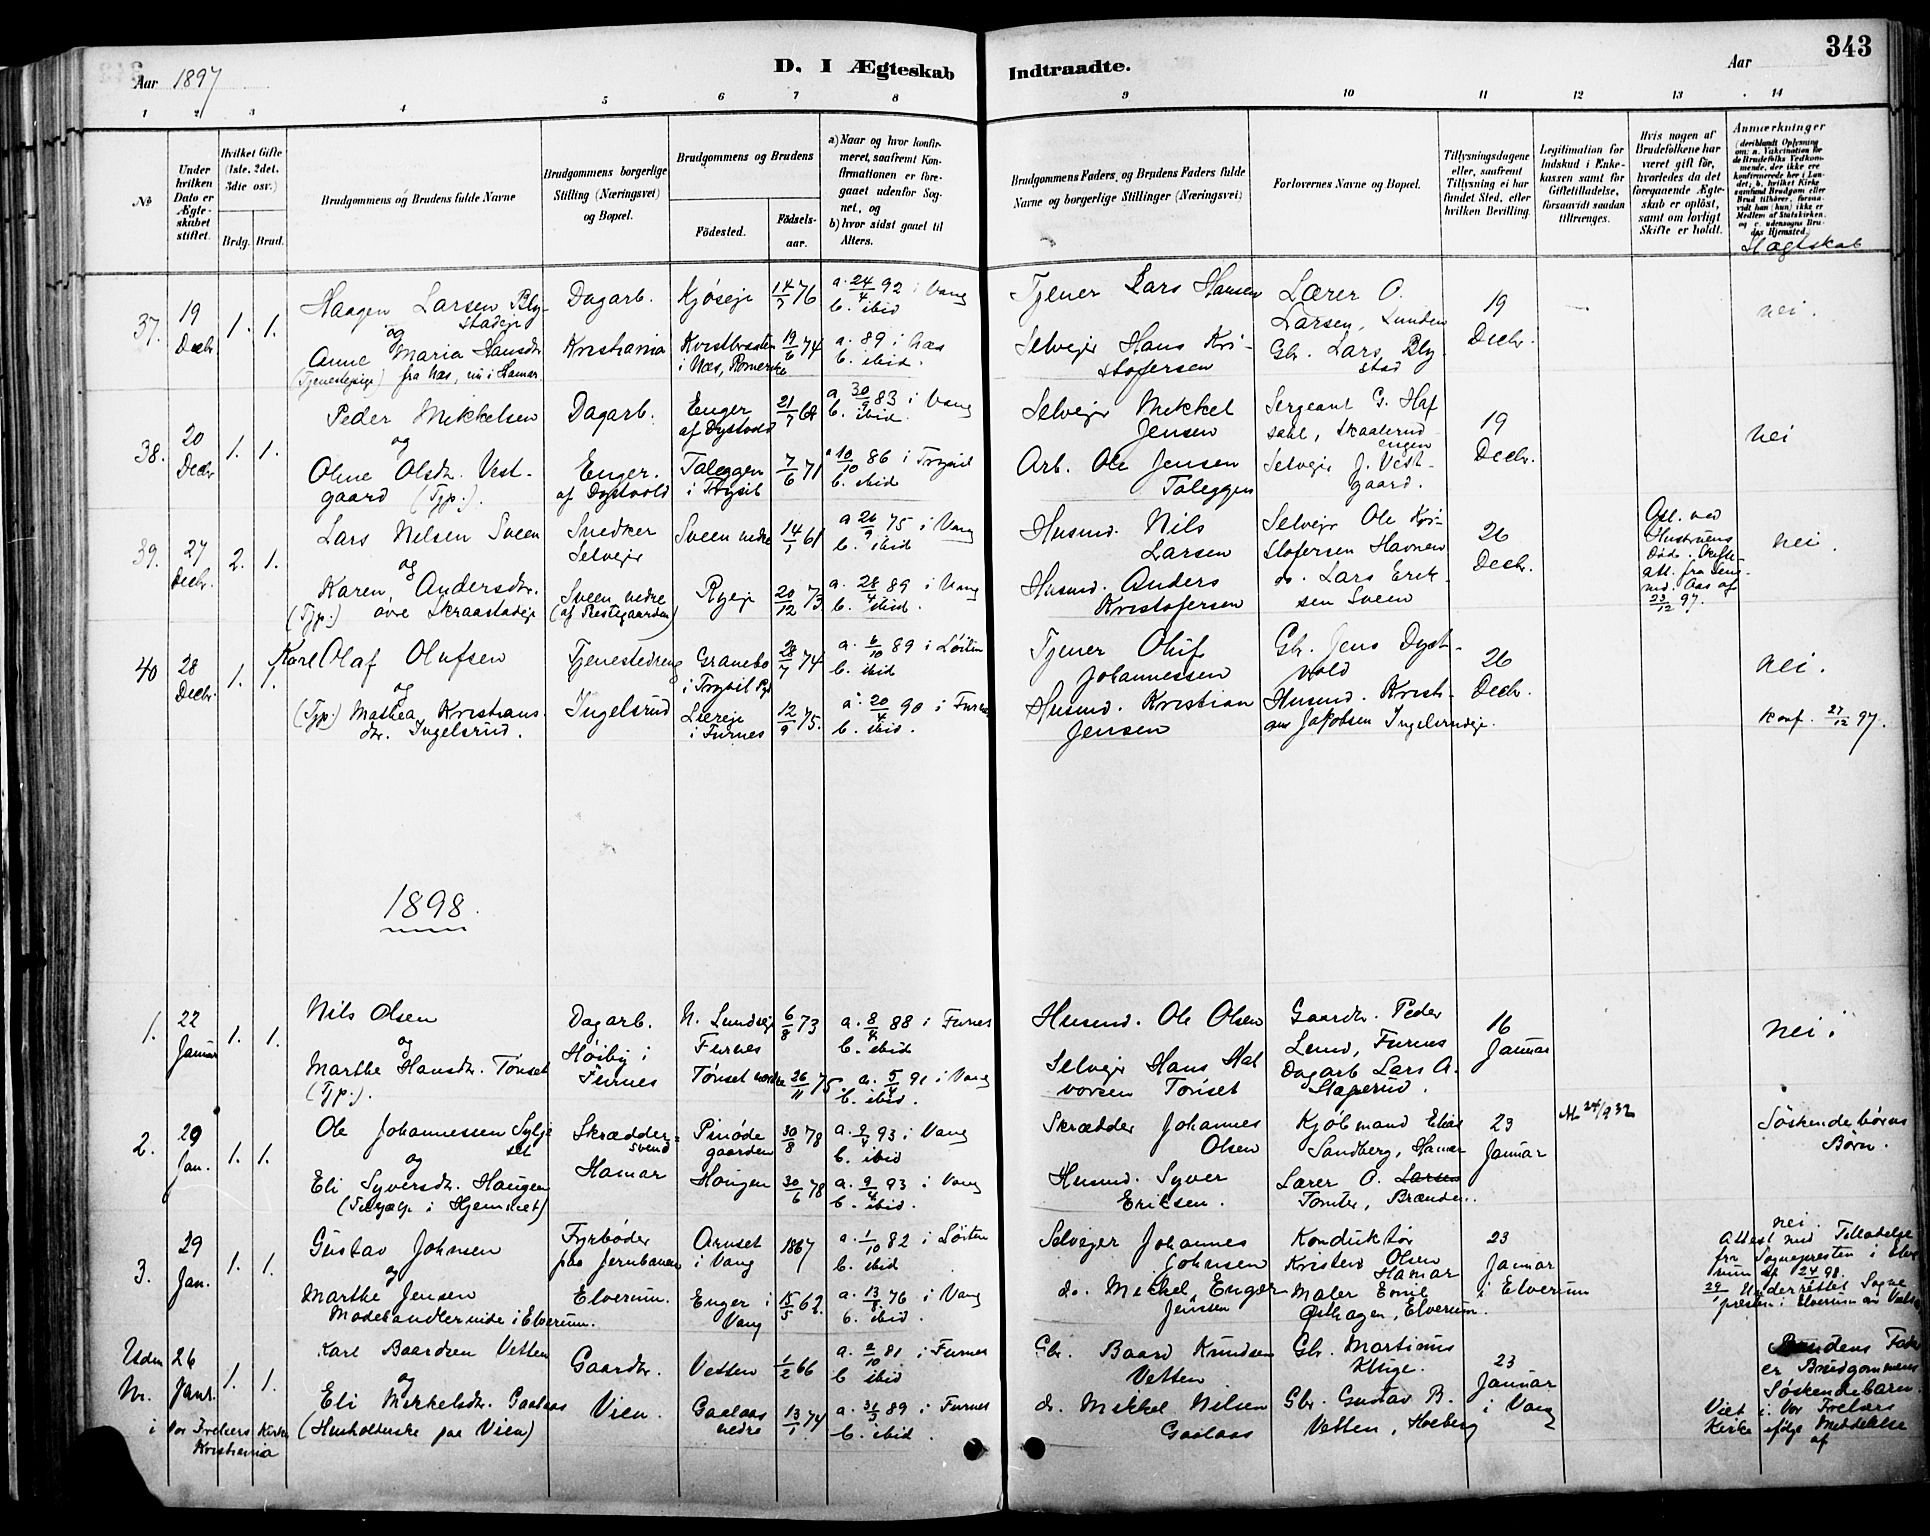 Aar 1897
D. I Ægteskab Indtraadte.
Aar
343
1 2 3 4 5 6 7 8 9 10 11 12 13 14
No
Under hvilken Dato er Ægteskabet stiftet.
Hvilket Gifte (1ste, 2det, 3die osv.)
Brdg. Brud.
Brudgommens og Brudens fulde Navne
Brudgommens borgerlige Stilling (Næringsvei) og Bopæl.
Brudgommens og Brudens
Fødested.
Fødselsaar.
a) Naar og hvor konfirmeret, saafremt Konfirmationen er foregaaet udenfor Sognet, og
b) hvor sidst gaaet til Alters.
Brudgommens Faders, og Brudens Faders fulde Navne og borgerlige Stillinger (Næringsvei)
Forlovernes Navne og Bopæl.
Tillysningsdagene eller, saafremt Tillysning ei har fundet Sted, efter hvilken Bevilling.
Legitimation for Indskud i Enkekassen samt for Giftetilladelse, forsaavidt saadan tiltrænges.
Hvis nogen af Brudefolkene har været gift før, hvorledes da det foregaaende Ægteskab er opløst, samt om lovligt Skifte er holdt.
Anmærkninger
Slægtskab
37. 19 Decbr 1. 1.
Haagen Larsen Blystadeje
og
Anne Maria Hansdr.
(Tjenestepige) fra Næs, nu i Hamar
Dagarb.
Kristiania
Kjøseje 14/7 76
Kvistbraaten i Næs, Romerike 19/6 74
a. 24/4 92 i Vang
b. ibid
a. 89 i Næs
b. ibid.
Tjener Lars Hansen
Selvejer Hans Kristofersen
Lærer O. Larsen, Lunden
Gbr. Lars Blystad
19 Decbr.
nei.
38. 20 Decbr 1. 1.
Peder Mikkelsen
og
Oline Olsdr. Vestgaard (Tjp.).
Dagarb.
Enger. af Dystvold
Enger af Dystvold 21/7 68
Taleggen i Trysil 7/6 71
a. 30/9 83 i Vang
b. ibid.
a 10/10 86 i Trysil
b. ibid
Selvejer Mikkel Jensen
Arb. Ole Jensen Taleggen
Sergeant G. Hafsahl, Skaalerudengen
Selvejer J. Vestgaard.
19 Decbr.
nei
39. 27 Decbr. 2. 1.
Lars Nilsen Sveen
og
Karen Andersdr.
(Tjp.) øvre Skraastadeje
Snedker Selvejer
Sveen nedre (af Prestegaarden)
Sveen nedre 14/1 61
Ryeje 20/12 73
a 26/9 75 i Vang
b. ibid
a. 28/4 89 i Vang
b. ibid.
Husmd. Nils Larsen
Husmd. Anders Kristofersen
Selvejer Ole Kristofersen Havnen
do. Lars Eriksen Sveen
26 Decbr.
Opl. ved Hustruens Død. Skifteatt. fra Lensmd. Aas af 23/12 97.
nei.
40 28 Decbr. 1. 1.
Karl Olaf Olufsen
og
(Tjp.) Mathea Kristiansdr. Ingelsrud.
Tjenestedreng
Ingelsrud
Granebo i Trysil 28/7 74
Liereje i Furnes 12/9 75.
a. 6/10 89 i Løiten
b. ibid
a. 20/4 90 i Furnes
b. ibid.
Tjener Oluf Johannessen
Husmd. Kristian Jensen
Gbr. Jens Dystvold
Husmd. Kristian Jakobsen Ingelsrudeje.
26 Decbr.
nei.
Konf. 27/12 97.
1898.
1. 22 Januar 1. 1.
Nils Olsen
og
Marthe Hansdr. Tønset
(Tjp.).
Dagarb.
Høiby i Furnes
N. Lundseje Furnes 6/8 73
Tønset nordre 26/11 75.
a. 8/4 88 i Furnes
b. ibid
a. 5/4 91 i Vang
b. ibid.
Husmd. Ole Olsen
Selvejer Hans Halvorsen Tønset
Gaardbr. Peder Lund, Furnes
Dagarb Lars A. Slaperud.
16 Januar
nei
2. 29 Jan. 1. 1.
Ole Johannessen Syljeset
og
Eli Syversdr. Haugen
(Tilhjælp i Hjemmet)
Skræddersvend
Hamar
Pinødegaarden 30/8 78
Haugen 30/6 78
a. 9/4 93 i Vang
b. ibid
a. 9/4 93 i Vang
b. ibid.
Skrædder Johannes Olsen
Husmd. Syver Eriksen.
Kjøbmand Elias Sandberg, Hamar
Lærer O. Larsen Tomter, Brænden.
23 Januar
24/9 32
Søskendebørns Børn.
3. 29 Jan. 1. 1.
Gustav Johnsen
og
Marthe Jensen
Modehandlerinde i Elverum.
Fyrbøder paa Jernbanen
Elverum.
Arnset i Vang 1867
Enger i Vang 15/5 62.
a. 1/10 82 i Løiten
b. ibid
a. 13/8 76 i Vang
b. ibid.
Selvejer Johannes Johnsen
do. Mikkel Enger Jensen
Konduktør Kristen Olsen Hamar
Maler Emil Østhagen, Elverum.
23 Januar i Elverum
nei.
Attest med Tilladelse fra Sognepresten i Elverum af 24/1 98.
29/1 Underrettet Sognepresten i Elverum om Vielsen
Uden Nr. 26 Janr. 1. 1.
i Vor Frelsers Kirke Kristiania
Karl Baardsen Vetten
og
Eli Mikkelsdr. Gaalaas
(Husholderske paa Vien)
Gaardbr.
Vien.
Vetten 1/2 66
Gaalaas nedre 13/1 74
a. 2/10 81 i Furnes
b ibid
a. 31/3 89 i Furnes
b. ibid.
Gbr. Baard Knudsen Vetten
do. Mikkel Nilsen Gaalaas
Gbr. Martinus Kluge.
Gbr. Gustav B. Vetten, Hoberg
23 Januar i Vang
Brudens Fader er Brudgommens Søskendebarn.
Viet i Vor Frelsers Kirke ifølge Meddelelse af